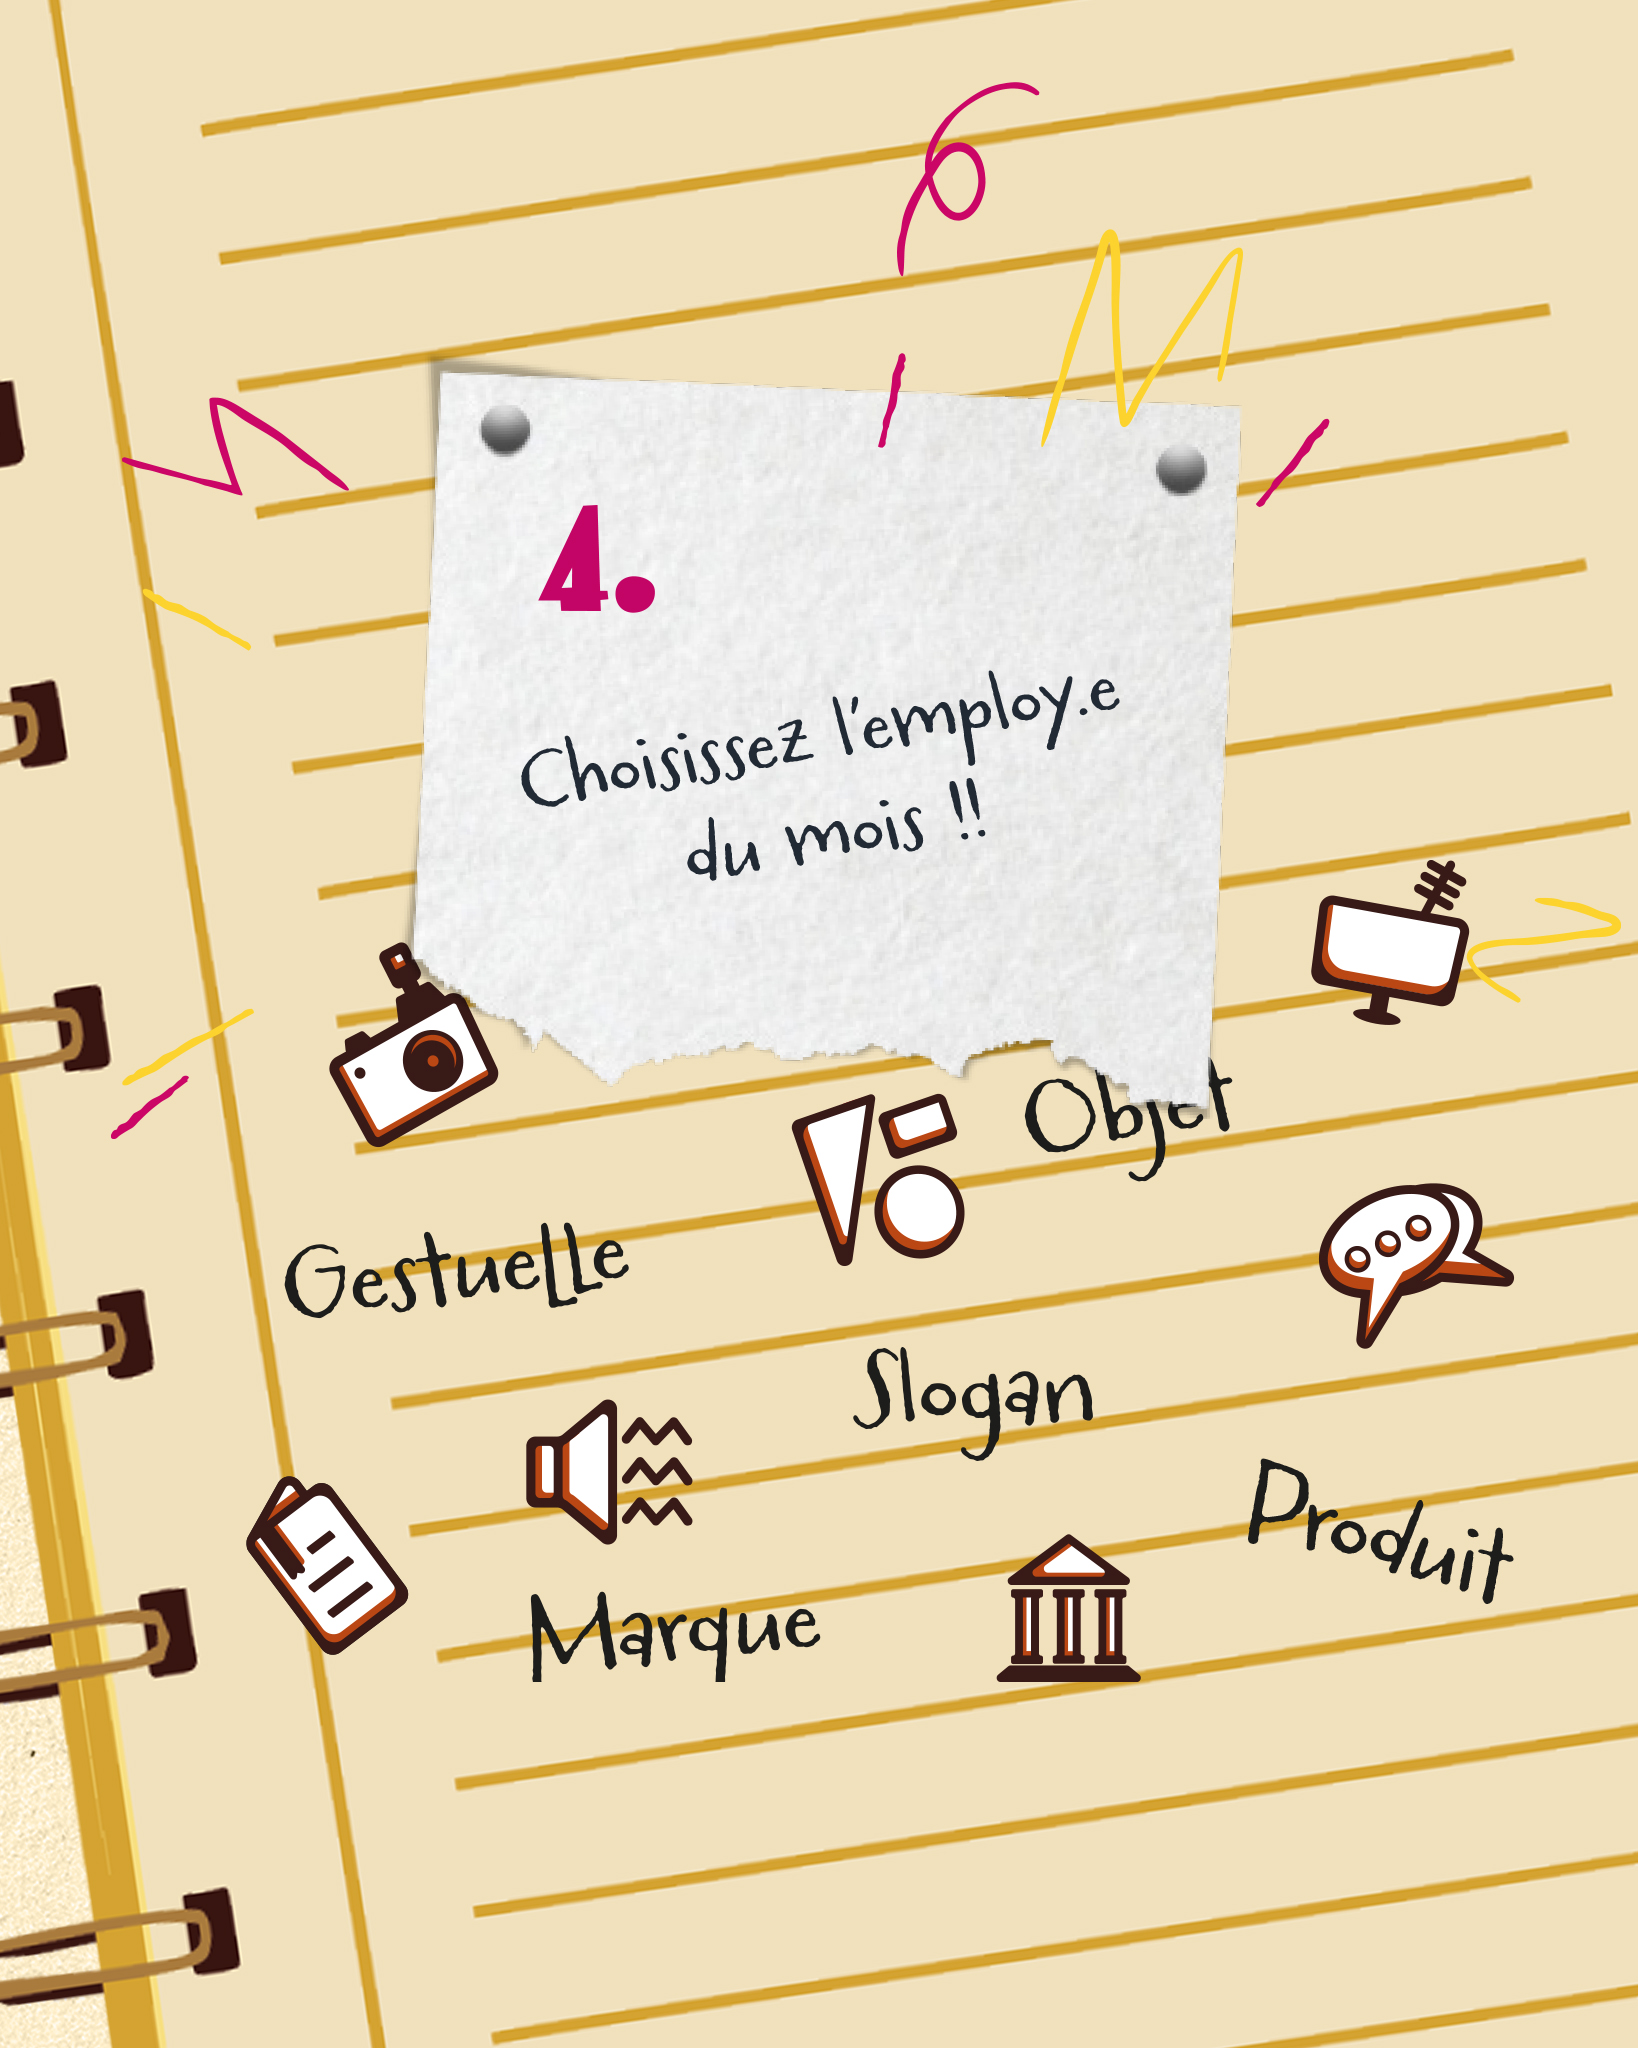 4.
Choisissez l'employ.e
du mois !!
Objet
Gestuelle
Slogan
Produit
Marque